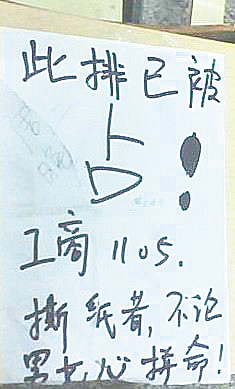 此排已被
占!
工商1105.
撕纸者,不论
男女必拼命!